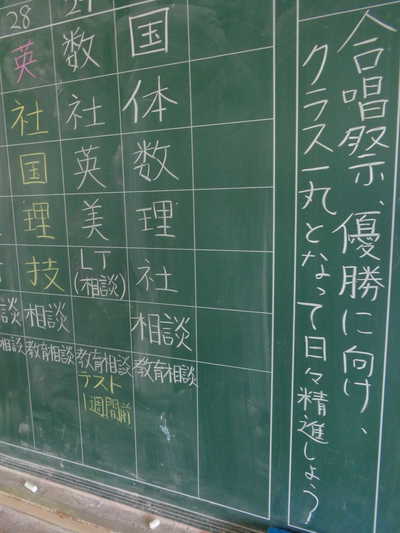 合唱祭、優勝に向け、
クラス一丸となって日々精進しよう
28
英
社
国
理
技
相談
教育相談
数
社
英
美
LT
(相談)
教育相談
テスト
1週間前
国
体
数
理
社
相談
教育相談